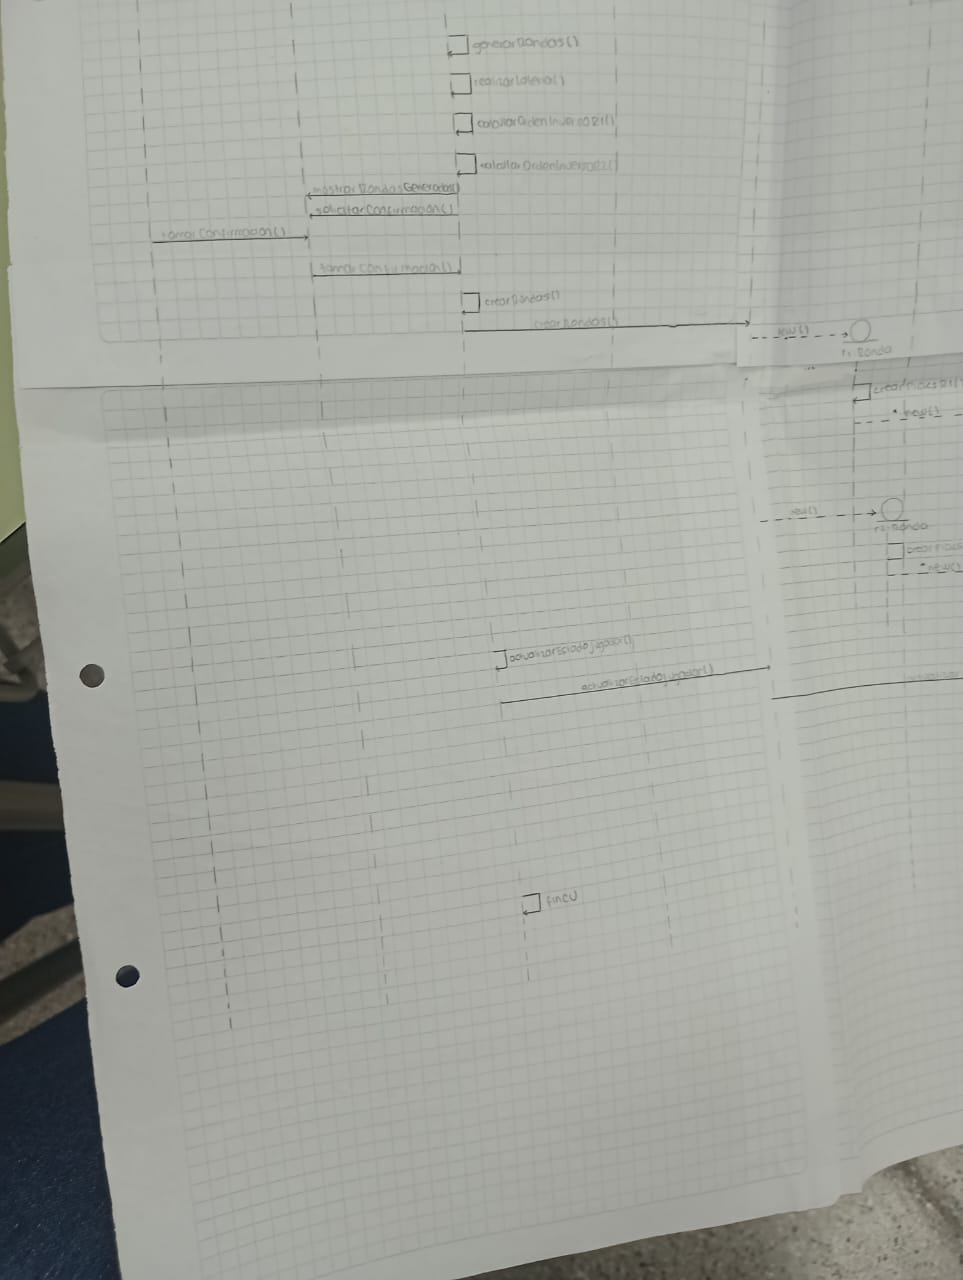 generarRondas()
realizarLoteria()
calcularOrdenInversoR1()
calcularOrdenInversoR2()
mostrarRondasGeneradas()
solicitarConfirmación()
tomarConfirmacion()
tomarConfirmacion()
crearRondas()
crearRondas()
new()
r1:Ronda
*new()
new()
r2:Ronda
*new()
actualizarEstadoJugador()
actualizarEstadoJugador()
actualizar
finCU